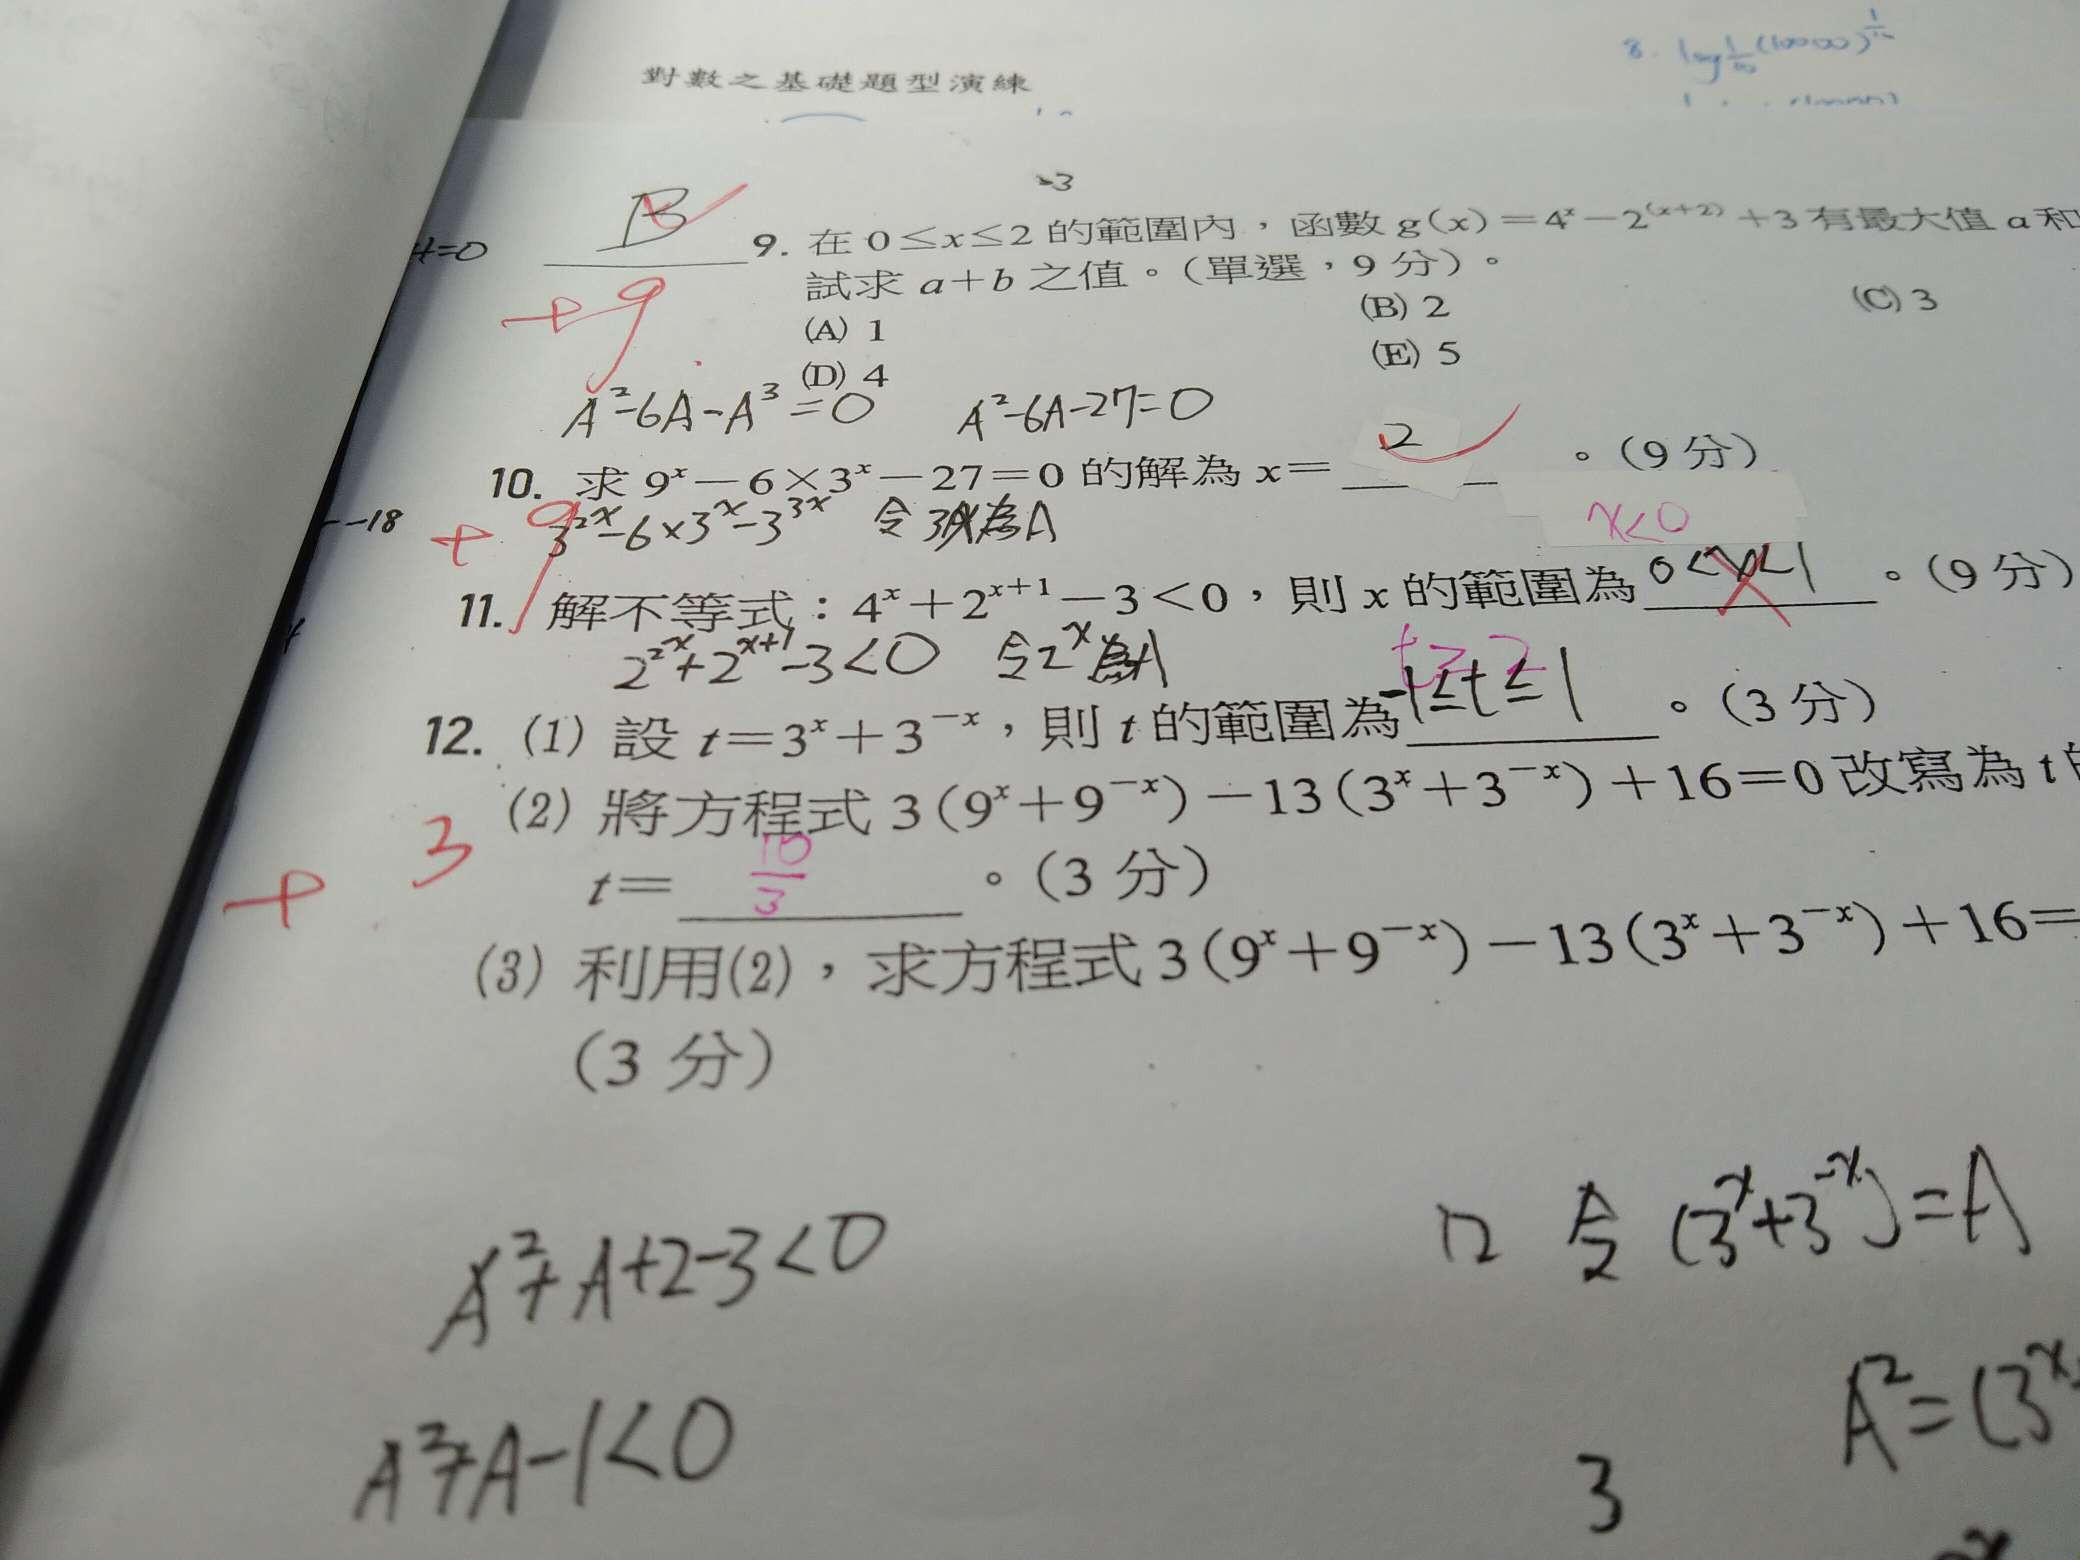 8. log 1/10 (10000)^1/10
對數之基礎題型演練
-3
B
t=0
9. 在 0≤x≤2 的範圍內，函數 g(x)=4^x-2^(x+2)+3 有最大值 a 和
試求 a+b 之值。(單選，9 分)。
+9
(A) 1
(B) 2
(C) 3
(D) 4
(E) 5
A^2-6A-A^3=0
A^2-6A-27=0
10. 求 9^x-6×3^x-27=0 的解為 x= 2 。(9 分)
-18
+9
3^2x-6×3^x-3^3x 令3^x為A
x<0
11. 解不等式：4^x+2^x+1-3<0，則 x 的範圍為 0<x<1 。(9 分)
2^2x+2^x+1-3<0 令2^x為A
t≥2
12. (1) 設 t=3^x+3^-x，則 t 的範圍為 -1≤t≤1 。(3 分)
(2) 將方程式 3(9^x+9^-x)-13(3^x+3^-x)+16=0 改寫為 t
+3
t= 10/3 。(3 分)
(3) 利用(2)，求方程式 3(9^x+9^-x)-13(3^x+3^-x)+16=
(3 分)
A^2+A+2-3<0
12 令 (3^x+3^-x)=A
A^2+A-1<0
A^2=(3^x
3
x